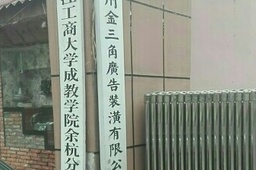 工商大学成教学院余杭分
州金三角廣告裝潢有限公